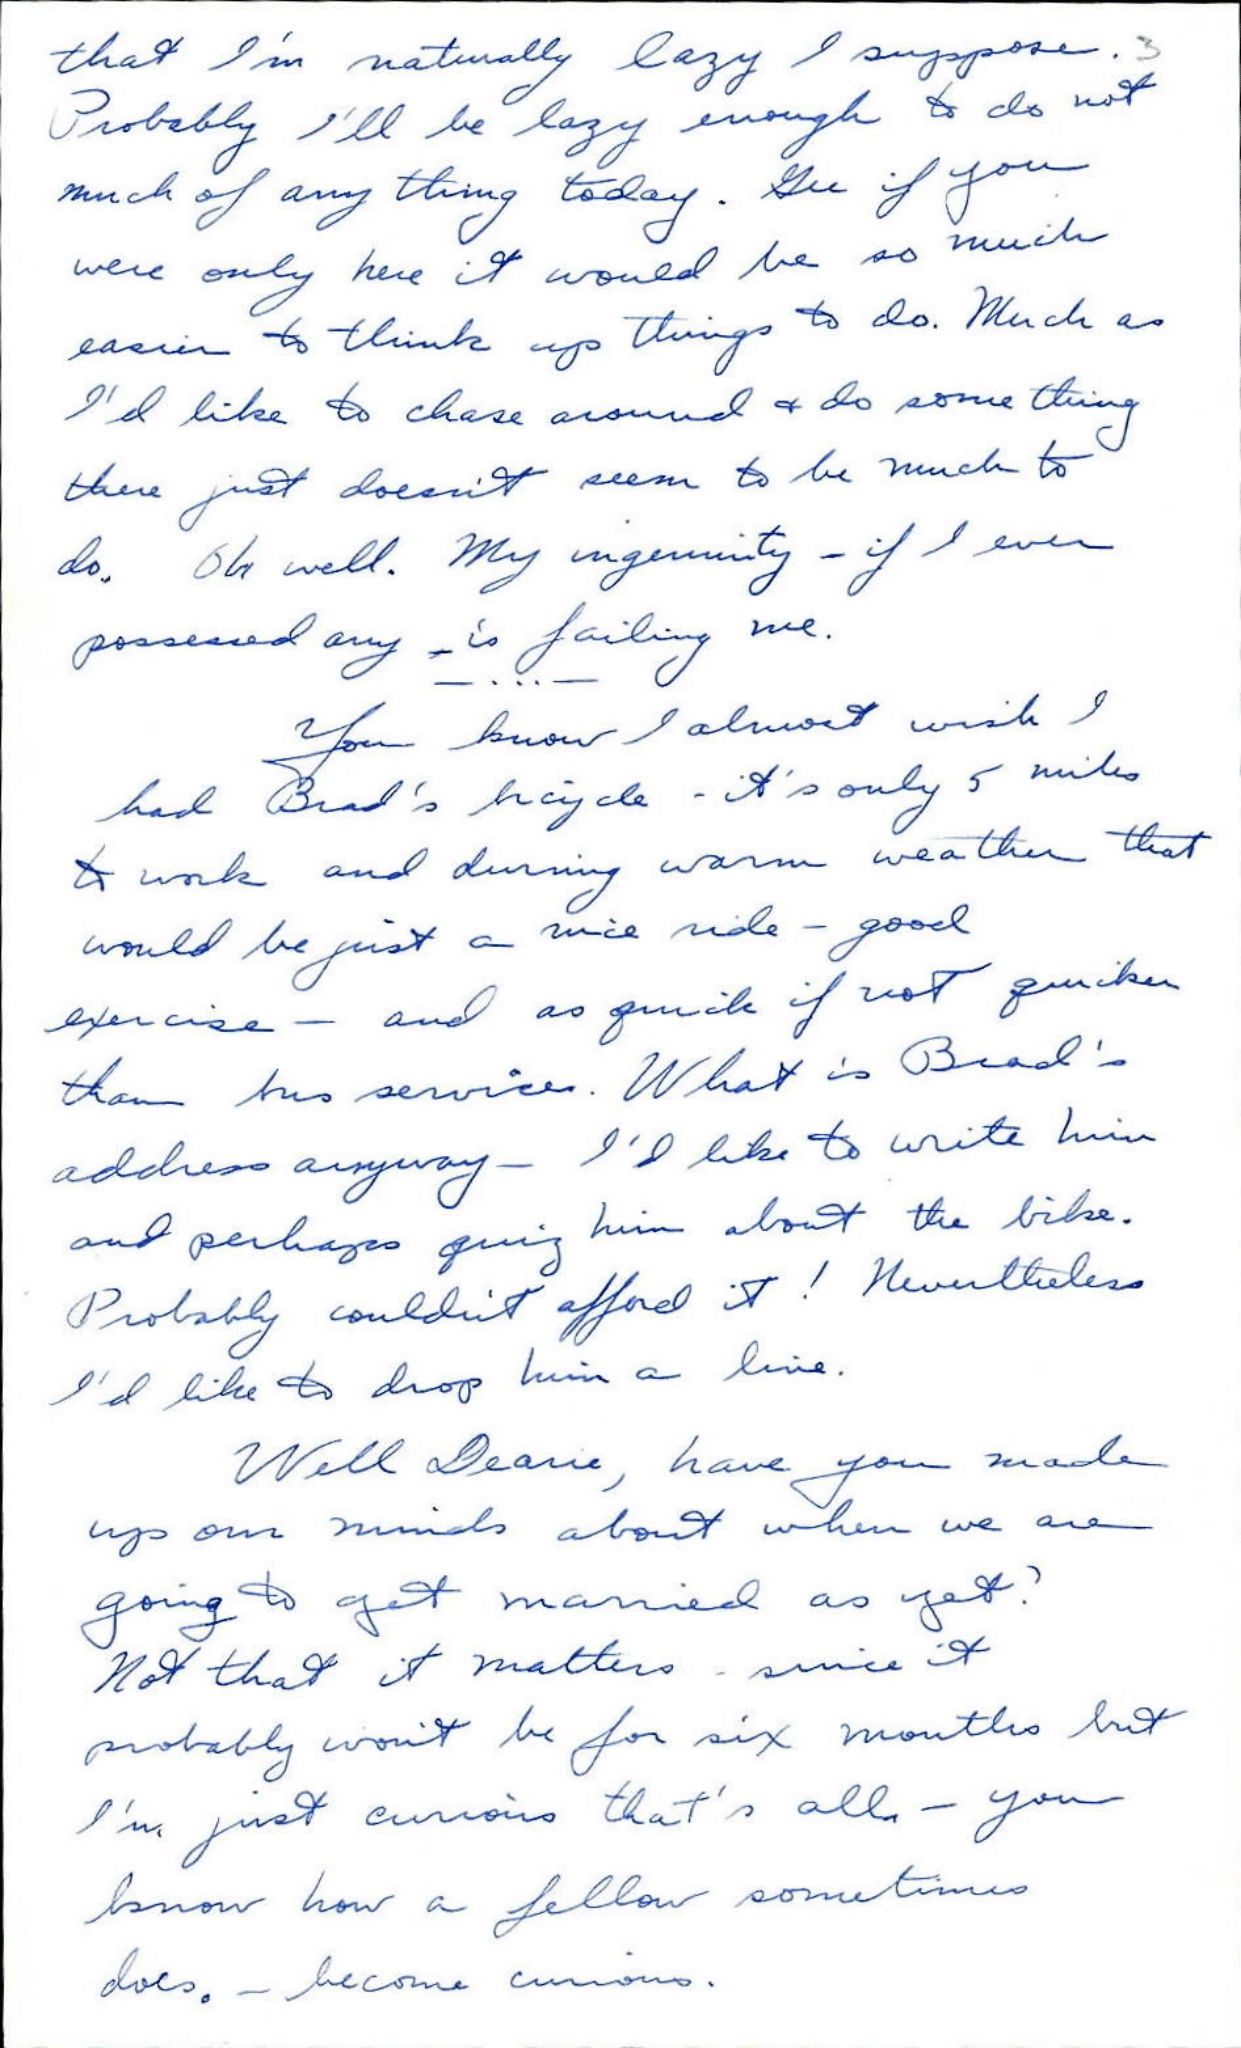 that I'm naturally lazy I suppose. 3
Probably I'll be lazy enough to do not
much of any thing today. Gee if you
were only here it would be so much
easier to think up things to do. Much as
I'd like to chase around & do some thing
there just doesn't seem to be much to
do. Oh well. My ingenuity - if I ever
possessed any - is failing me.
— ... —
You know I almost wish I
had Brad's bicycle - it's only 5 miles
to work and durning warm weather that
would be just a nice ride - good
exercise - and as quick if not quicker
than bus services. What is Brad's
address anyway - I'd like to write him
and perhaps quiz him about the bike.
Probably couldn't afford it! Nevertheless
I'd like to drop him a line.
Well Dearie, have you made
up our minds about when we are
going to get married as yet?
Not that it matters - since it
probably won't be for six months but
I'm just curious that's all. - you
know how a fellow sometimes
does. - become curious.